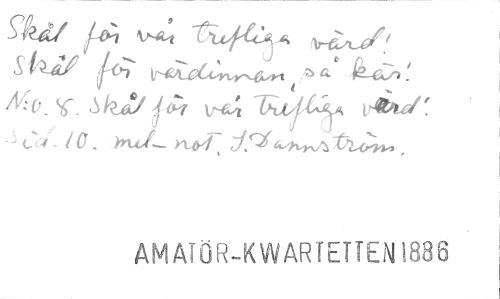 Skål för vår trefliga värd!
Skål för värdinnan, så kär!
N:o. 8. Skål för vår trefliga värd!
Sid. 10. mel-not. I. Dannström.
AMATÖR-KWARTETTEN 1886